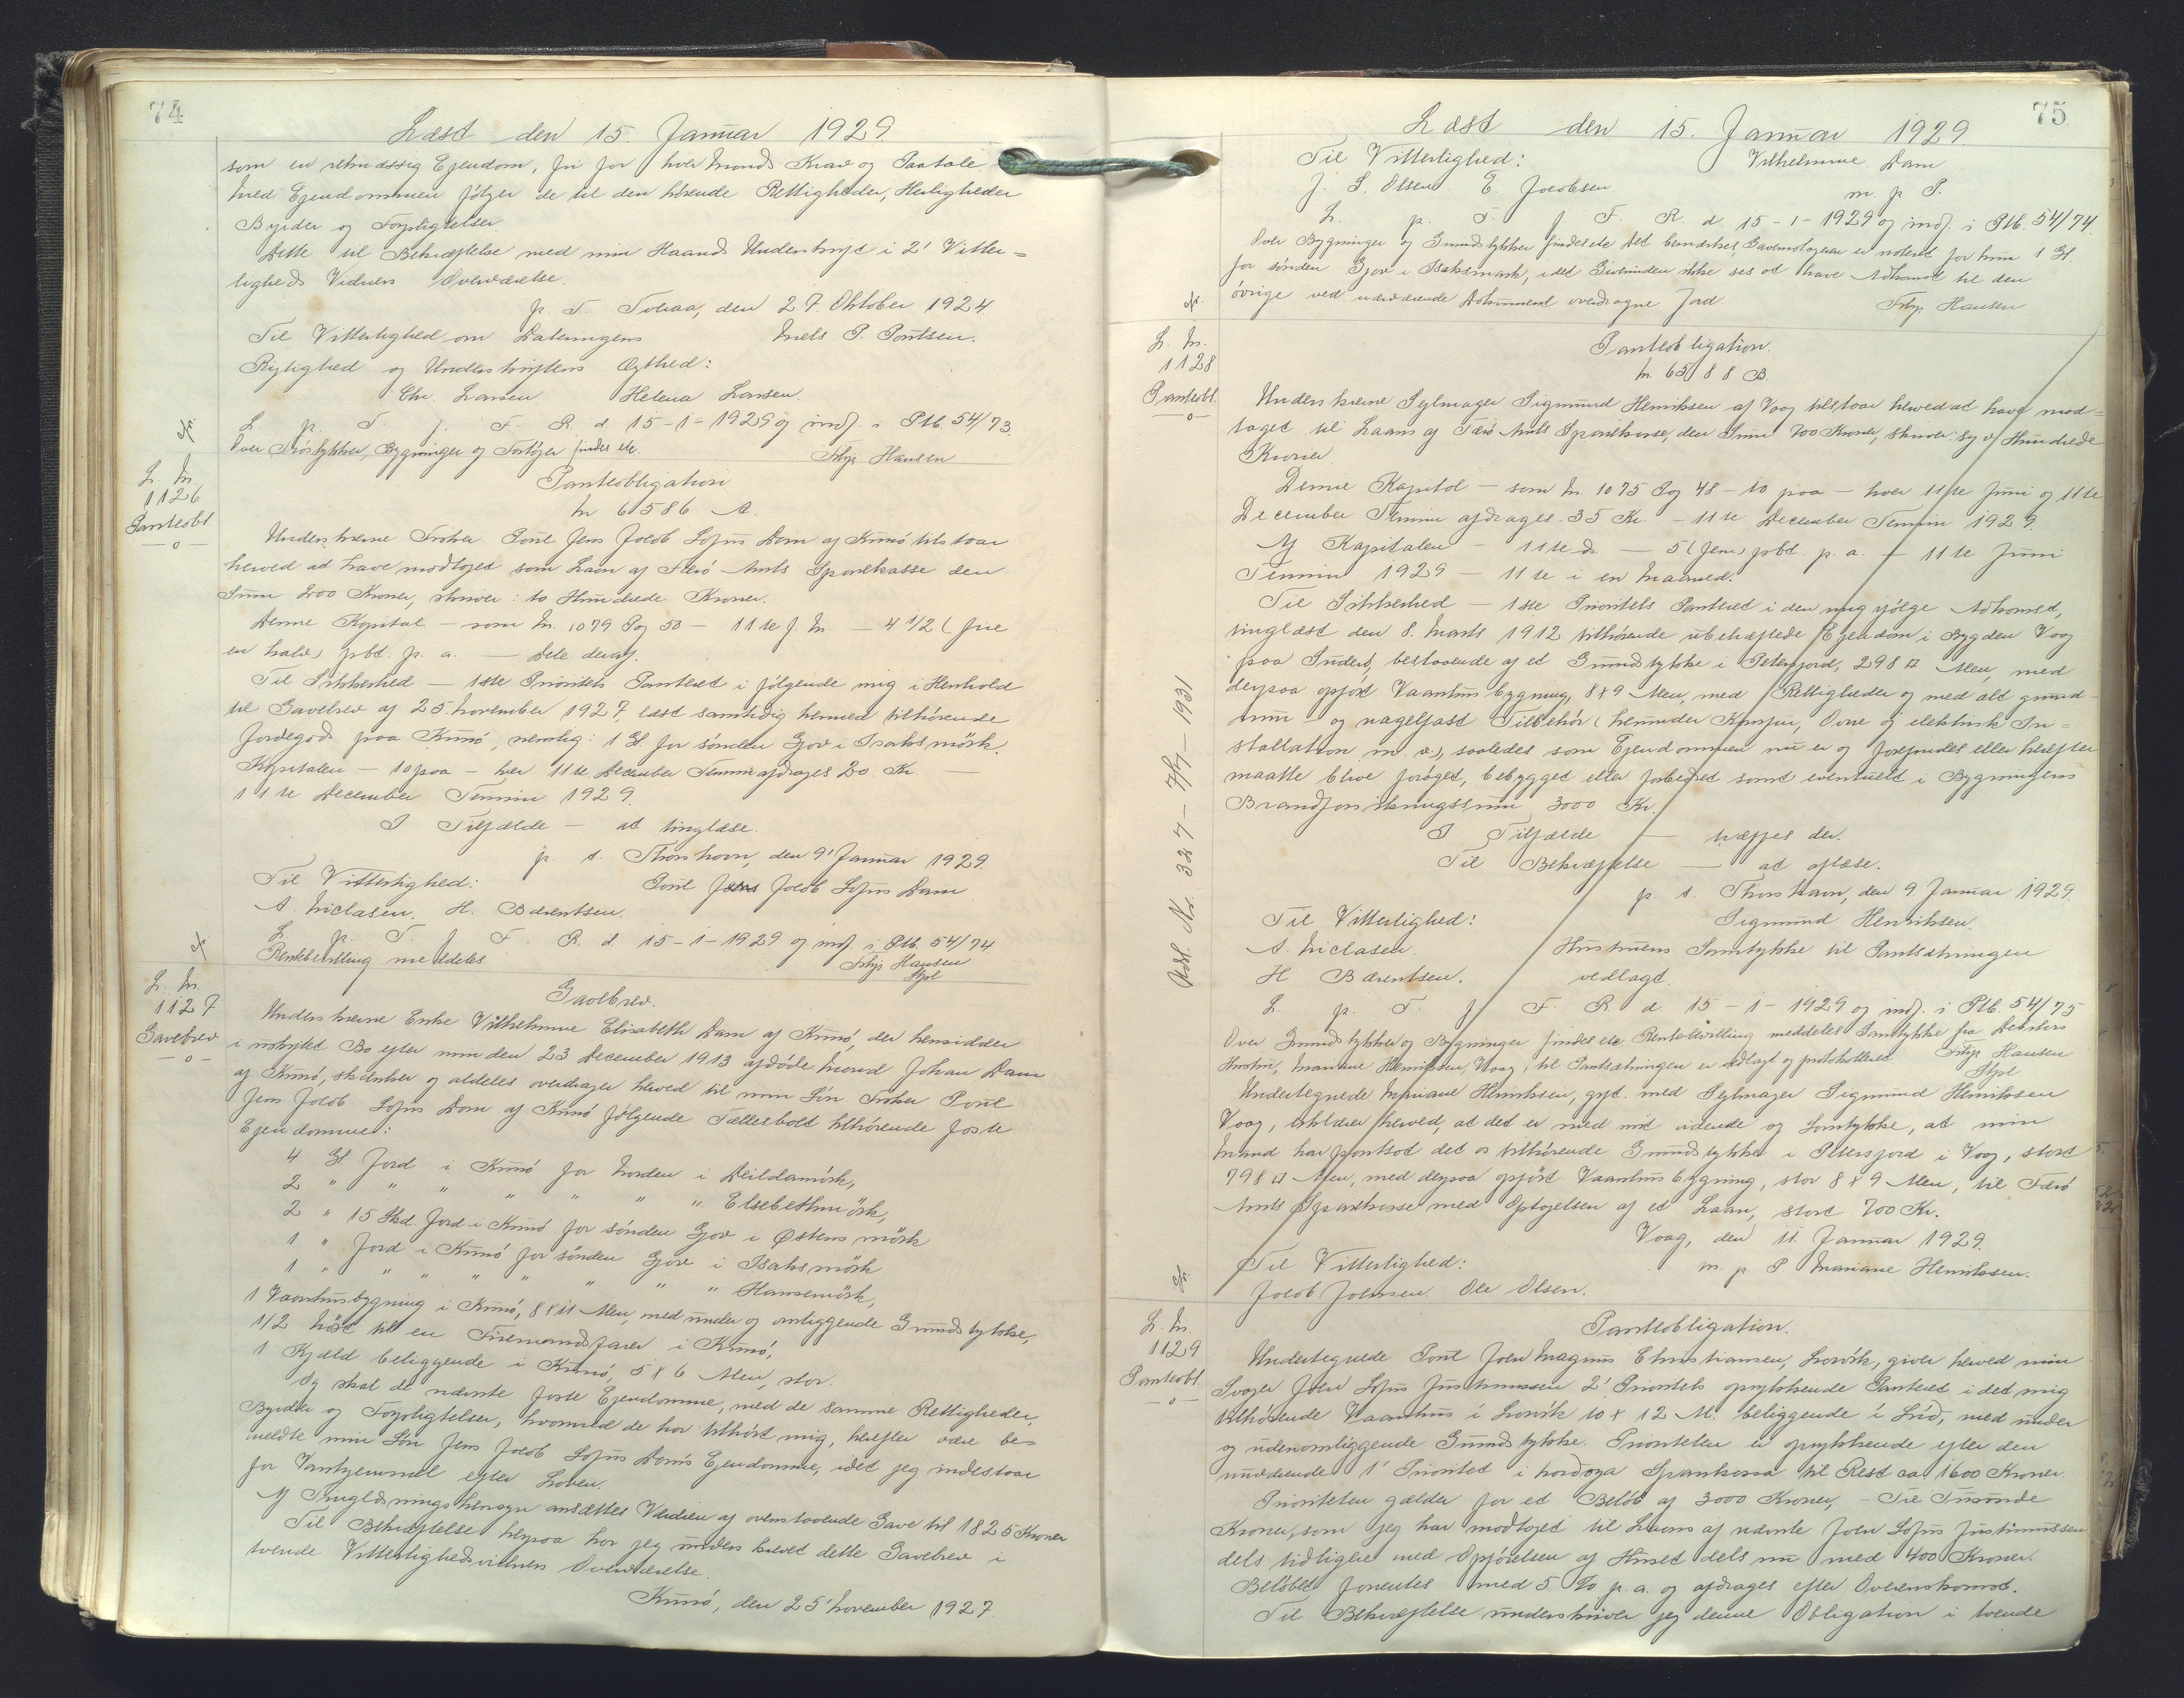 74
Læst den 15. Januar 1929.
som en retmæssig Ejendom, fri for hver Mands Krav og Paatale
Med Ejendommen følger de til den hörende Rettigheder, Herligheder
Byrder og Forpligtelser.
Dette til Bekræftelse med min Haands Underskrift i 2' Vitter=
ligheds Vidners Overværelse.
p. T. Tvöraa, den 27. Oktober 1924
Til Vitterlighed om Dateringens Niels P. Poulsen.
Rigtighed og Underskriftens Ægthed:
Chr. Larsen Helena Larsen.
L. p. T. f. F. R. d. 15-1-1929 og indf. i Ptb. 54/73.
Over Jordstykker, Bygninger og Fartöjer findes ete.
Filip Hansen
L. Nr.
1126
Panteobl.
—o—
Panteobligation
Nr. 6586 A.
Underskrevne Fisker Poul Jens Jacob Sofus Dam af Kunö tilstaar
herved at have modtaget som Laan af Færö Amts Sparekasse den
Sum 200 Kroner, skriver: to Hundrede Kroner.
Denne Kapital — som Nr. 1079 Pag 50 — 11te J. M. — 4 1/2 (fire
en halv) pCt. p. a. — Dele deraf.
Til Sikkerhed — 1ste Prioritets Panteret i følgende mig i Henhold
til Gavebrev af 25 November 1927, læst samtidig hermed tilhørende
Jordegods paa Kunö, nemlig: 1 Gl. for sönden Gjov i Isaksmörk.
Kapitalen — 10 paa — hver 11te December Termin afdrages 20 Kr. —
11te December Termin 1929.
I Tilfælde — at tinglæse.
p. t. Thorshavn, den 9' Januar 1929.
Til Vitterlighed: Poul Jens Jacob Sofus Dam
A. Niclasen. H. Bærentsen.
L. p. T. f. F. R. d. 15-1-1929 og indf. i Ptb. 54/74
Rentebevilling meddeles Filip Hansen
L. Nr.
1127
Gavebrev
—o—
Gavebrev.
Underskrevne Enke Vilhelmine Elisabeth Dam af Kunö, der hensidder
i uskiftet Bo efter min den 23 December 1913 afdöde Mand Johan Dam
af Kunö, skænker og aldeles overdrager herved til min Sön Fisker Poul
Jens Jacob Sofus Dam af Kunö følgende Fællesbolet tilhörende faste
Ejendomme:
4 Gl Jord i Kunö for Norden i Deildamörk,
2 " " " " " " " Elsebethmörk,
2 " 15 Skd. Jord i Kunö for sönden Gjov i Östensmörk
1 " Jord i Kunö for sönden Gjov i Isaksmörk
1 " " " " " " " Hansemörk,
1 Vaanhusbygning i Kunö, 8 x 11 Alen, med under og omliggende Grundstykke,
1/2 Nöst til en Firemandsfarer i Kunö,
1 Kjæld beliggende i Kunö, 5 x 6 Alen, stor.
Og skal de nævnte faste Ejendomme, med de samme Rettigheder,
Byrder og Forpligtelser, hvormed de har tilhört mig, herefter være be=
meldte min Sön Jens Jacob Sofus Dam's Ejendomme, idet jeg indestaar
for Vanhjemmel efter Loven.
Af Tinglæsningshensyn ansættes Værdien af ovenstaaende Gave til 1825 Kroner
Til Bekræftelse herpaa har jeg underskrevet dette Gavebrev i
tvende Vitterlighedsvidners Overværelse.
Kunö, den 25' November 1927.
75
Læst den 15. Januar 1929.
Til Vitterlighed: Vilhelmine Dam
J. S. Olsen. E. Jacobsen m. p. P.
L. p. T. f. F. R. d. 15-1-1929 og indf. i Ptb. 54/74.
Over Bygninger og Grundstykker findes ete Det bemærkes, Gavemodtageren er noteret for kun 1 Gl.
for sönden Gjov i Isaksmørk, idet Giverinden ikke ses at have Adkomst til den
övrige ved nærværende Dokument overdragne Jord Filip Hansen
L. Nr.
1128
Panteobl.
—o—
Panteobligation.
Nr. 6588 B
Underskrevne Sejlmager Sigmund Henriksen af Vaag tilstaar herved at have mod=
taget til Laans af Færö Amts Sparekasse, den Sum 700 Kroner, skriver: Syv Hundrede
Kroner
Denne Kapital — som Nr. 1075 Pag 48 — 10 paa — hver 11te Juni og 11te
December Termin afdrages 35 Kr. — 11te December Termin 1929.
Af Kapitalen — 11te D. — 5 (fem) pCt. p. a. — 11te Juni
Termin 1929 — 11te i en Maaned.
Til Sikkerhed — 1ste Prioritets Panteret i den mig ifölge Adkomst,
tinglæst den 8. Marts 1912 tilhörende ubehæftede Ejendom i Bygden Vaag
paa Suderö, bestaaende af et Grundstykke i Petersjord, 298 □ Alen, med
derpaa opfört Vaanhusbygning, 8 x 9 Alen, med Rettigheder og med alt grund
mur- og nagelfast Tilbehör (herunder Komfur, Ovne og elektrisk In=
stallation m. v.), saaledes som Ejendommen nu er og forefindes eller herefter
maatte blive foröget, bebygget eller forbedret samt eventuelt i Bygningens
Brandforsikringssum 3000 Kr.
I Tilfælde — træffes der.
Til Bekræftelse — at aflæse.
p. t. Thorshavn, den 9. Januar 1929
Til Vitterlighed: Sigmund Henriksen.
A. Niclasen. Hustruens Samtykke til Pantsætningen
H. Bærentsen. vedlagt.
L. p. T. f. F. R. d. 15-1-1929 og indf. i Ptb. 54/75
Over Grundstykker og Bygninger findes ete Rentebevilling meddeles Samtykke fra Debitors
Hustru, Mariane Henriksen, Vaag, til Pantsætningen er vedlagt og protokolleret Filip Hansen
Undertegnede Mariane Henriksen, gift med Sejlmager Sigmund Henriksen
Vaag, erklærer herved, at det er med mit vidende og Samtykke, at min
Mand har pantsat det os tilhörende Grundstykke i Petersjord i Vaag, stort
798 □ Alen, med derpaa opfört Vaanhusbygning, stor 8 x 9 Alen, til Færö
Amts Sparekasse med Optagelsen af et Laan, stort 700 Kr.
Vaag, den 11. Januar 1929.
Til Vitterlighed: m. p. P. Mariane Henriksen.
Jacob Johnsen Ole Olsen.
Adl. Nr. 327 — 7/7 — 1931
L. Nr.
1129
Panteobl.
—o—
Panteobligation.
Undertegnede Poul Joen Magnus Christiansen, Lorvík, giver herved min
Svoger Joen Sofus Justinussen 2' Prioritets oprykkende Panteret i det mig
tilhörende Vaanhus i Lorvík 10 x 12 Al. beliggende í Líð, med under
og udenomliggende Grundstykke. Prioriteten er oprykkende efter den
nuværende 1' Prioritet i Nordoya Sparikassa til Rest ca 1600 Kroner.
Prioriteten gælder for et Belöb af 3000 Kroner, — Tre Tusinde
Kroner, som jeg har modtaget til Laans af nævnte Joen Sofus Justinussen
dels tidligere med Opförelsen af Huset dels nu med 400 Kroner.
Belöbet forrentes med 5 % p. a. og afdrages efter Overenskomst.
Til Bekræftelse underskriver jeg denne Obligation i tvende